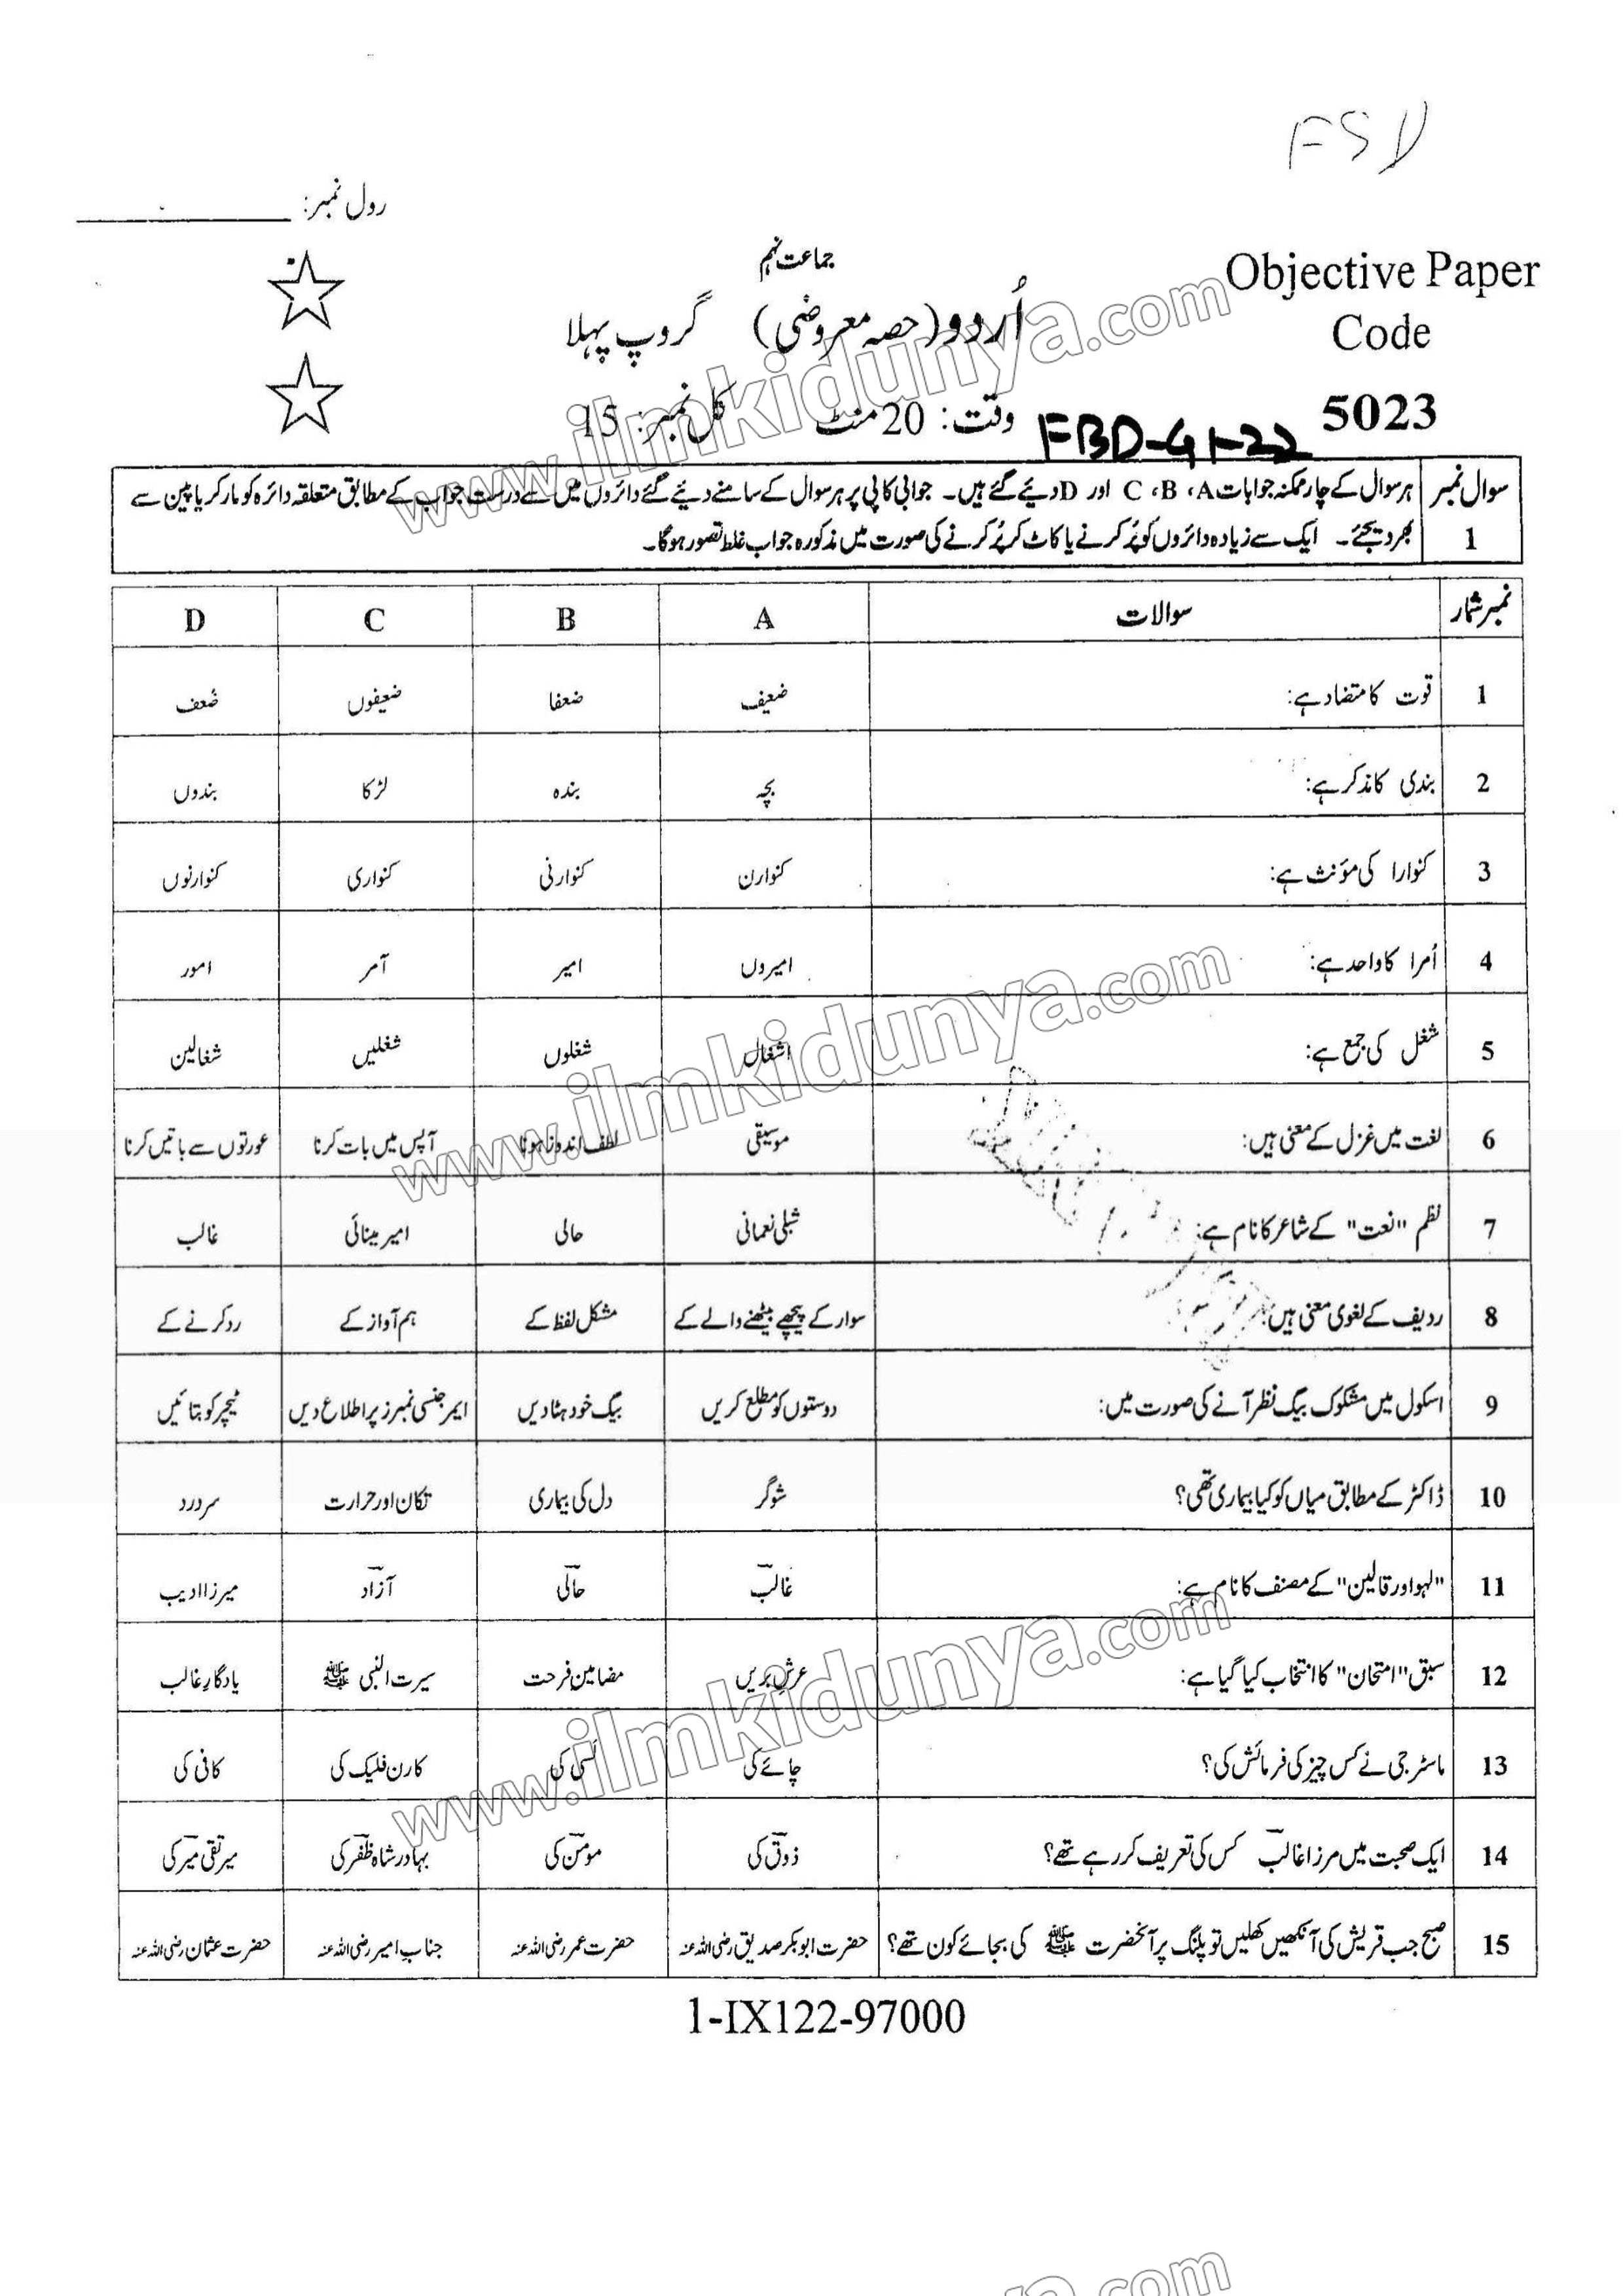 FSD
رول نمبر:
جماعت نہم
Objective Paper
اُردو (حصہ معروضی) گروپ پہلا
Code
وقت: 20 منٹ کل نمبر: 15
5023
FBD-G1-22
سوال نمبر 1
ہر سوال کے چار ممکنہ جوابات A، B، C اور D دیئے گئے ہیں۔ جوابی کاپی پر ہر سوال کے سامنے دیئے گئے دائروں میں سے درست جواب کے مطابق متعلقہ دائرہ کو مارکر یا پین سے
بھر دیجئے۔ ایک سے زیادہ دائروں کو پُر کرنے یا کاٹ کر پُر کرنے کی صورت میں مذکورہ جواب غلط تصور ہوگا۔
نمبر شمار سوالات A B C D
1 قوت کا متضاد ہے: ضعیف ضعفا ضعیفوں ضُعف
2 بندی کا مذکر ہے: بچہ بندہ لڑکا بندوں
3 کنوارا کی مؤنث ہے: کنوارن کنوارنی کنواری کنوارنوں
4 اُمرا کا واحد ہے: امیروں امیر آمر امور
5 شغل کی جمع ہے: اشغال شغلوں شغلیں شغالین
6 لغت میں غزل کے معنی ہیں: موسیقی لطف اندوز ہونا آپس میں بات کرنا عورتوں سے باتیں کرنا
7 نظم "نعت" کے شاعر کا نام ہے: شبلی نعمانی حالی امیر مینائی غالب
8 ردیف کے لغوی معنی ہیں: سوار کے پیچھے بیٹھنے والے کے مشکل لفظ کے ہم آواز کے رد کرنے کے
9 اسکول میں مشکوک بیگ نظر آنے کی صورت میں: دوستوں کو مطلع کریں بیگ خود ہٹا دیں ایمرجنسی نمبرز پر اطلاع دیں ٹیچر کو بتائیں
10 ڈاکٹر کے مطابق میاں کو کیا بیماری تھی؟ شوگر دل کی بیماری تکان اور حرارت سر درد
11 "لہو اور قالین" کے مصنف کا نام ہے: غالبؔ حالیؔ آزادؔ میرزا ادیب
12 سبق "امتحان" کا انتخاب کیا گیا ہے: عرش بریں مضامین فرحت سیرت النبی ﷺ یادگارِ غالب
13 ماسٹر جی نے کس چیز کی فرمائش کی؟ چائے کی لسی کی کارن فلیک کی کافی کی
14 ایک صحبت میں مرزا غالبؔ کس کی تعریف کر رہے تھے؟ ذوقؔ کی مومنؔ کی بہادر شاہ ظفرؔ کی میر تقی میرؔ کی
15 صبح جب قریش کی آنکھیں کھلیں تو پلنگ پر آنحضرت ﷺ کی بجائے کون تھے؟ حضرت ابوبکر صدیق رضی اللہ عنہ حضرت عمر رضی اللہ عنہ جناب امیر رضی اللہ عنہ حضرت عثمان رضی اللہ عنہ
1-IX122-97000
www.ilmkidunya.com
www.ilmkidunya.com
www.ilmkidunya.com